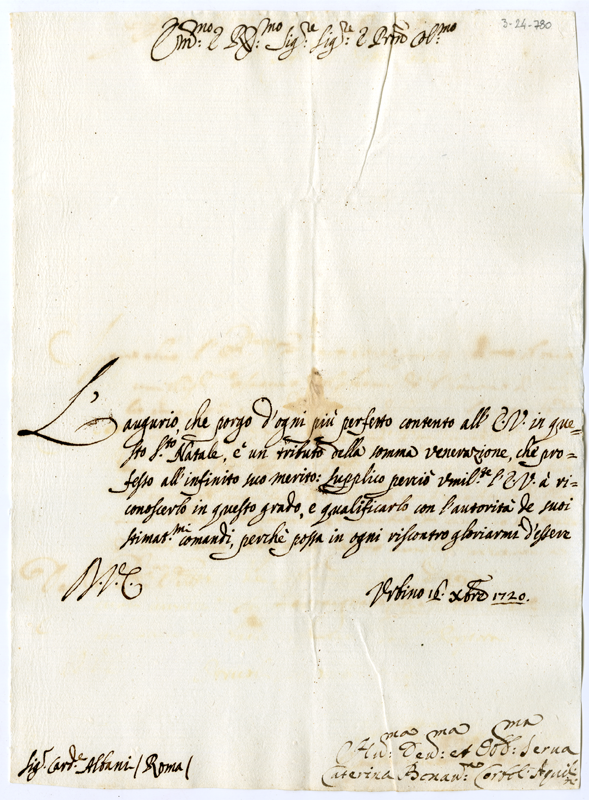 3-24-780
Em:mo e R:mo Sig:re Sig:re e Pron Col:mo
L'augurio, che porgo d'ogni più perfetto contento all' E.V. in que=
sto S.to Natale, è un tributo della somma venerazione, che pro=
fesso all'infinito suo merito: supplico perciò vmil.te l'E.V. à ri=
conoscerlo in questo grado, e qualificarlo con l'autorità de suoi
stimat.mi comandi, perche possa in ogni riscontro gloriarmi d'essere
Vrbino 16. Xbre 1720.
Sig.r Card.e Albani / Roma /
Hu:ma Deu:ma et Obb:ma Serua
Caterina Bonau: